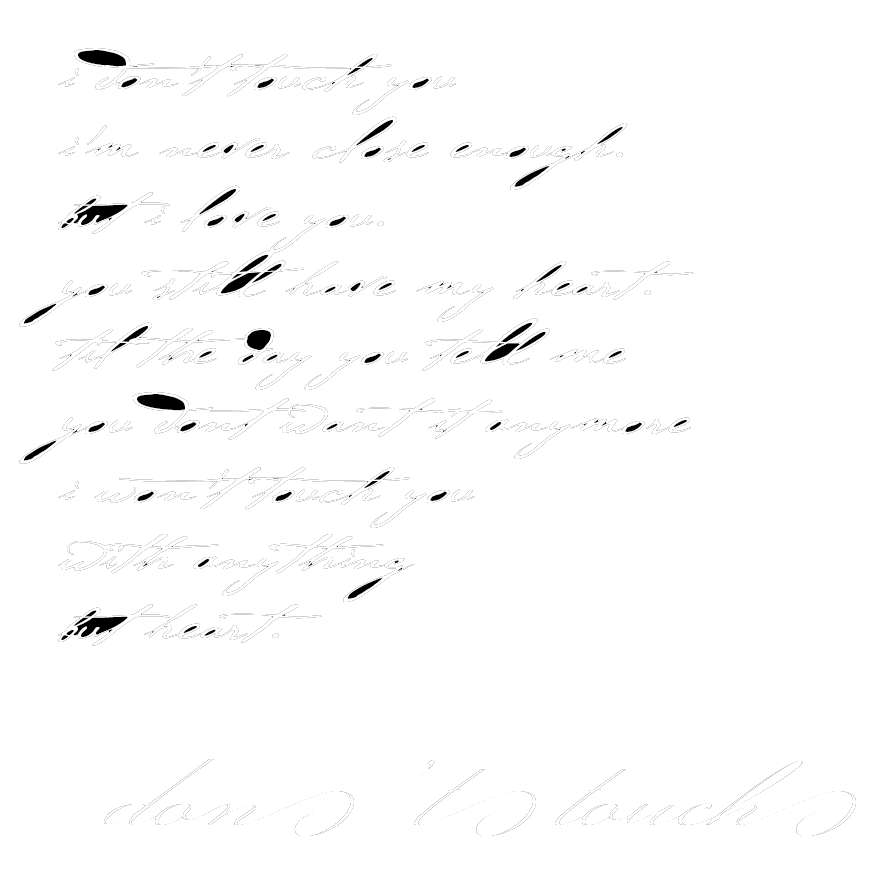 i don't touch you
i'm never close enough.
but i love you.
you still have my heart.
til the day you tell me
you dont want it anymore
i won't touch you
with anything
but heart.
don's 't's touch's